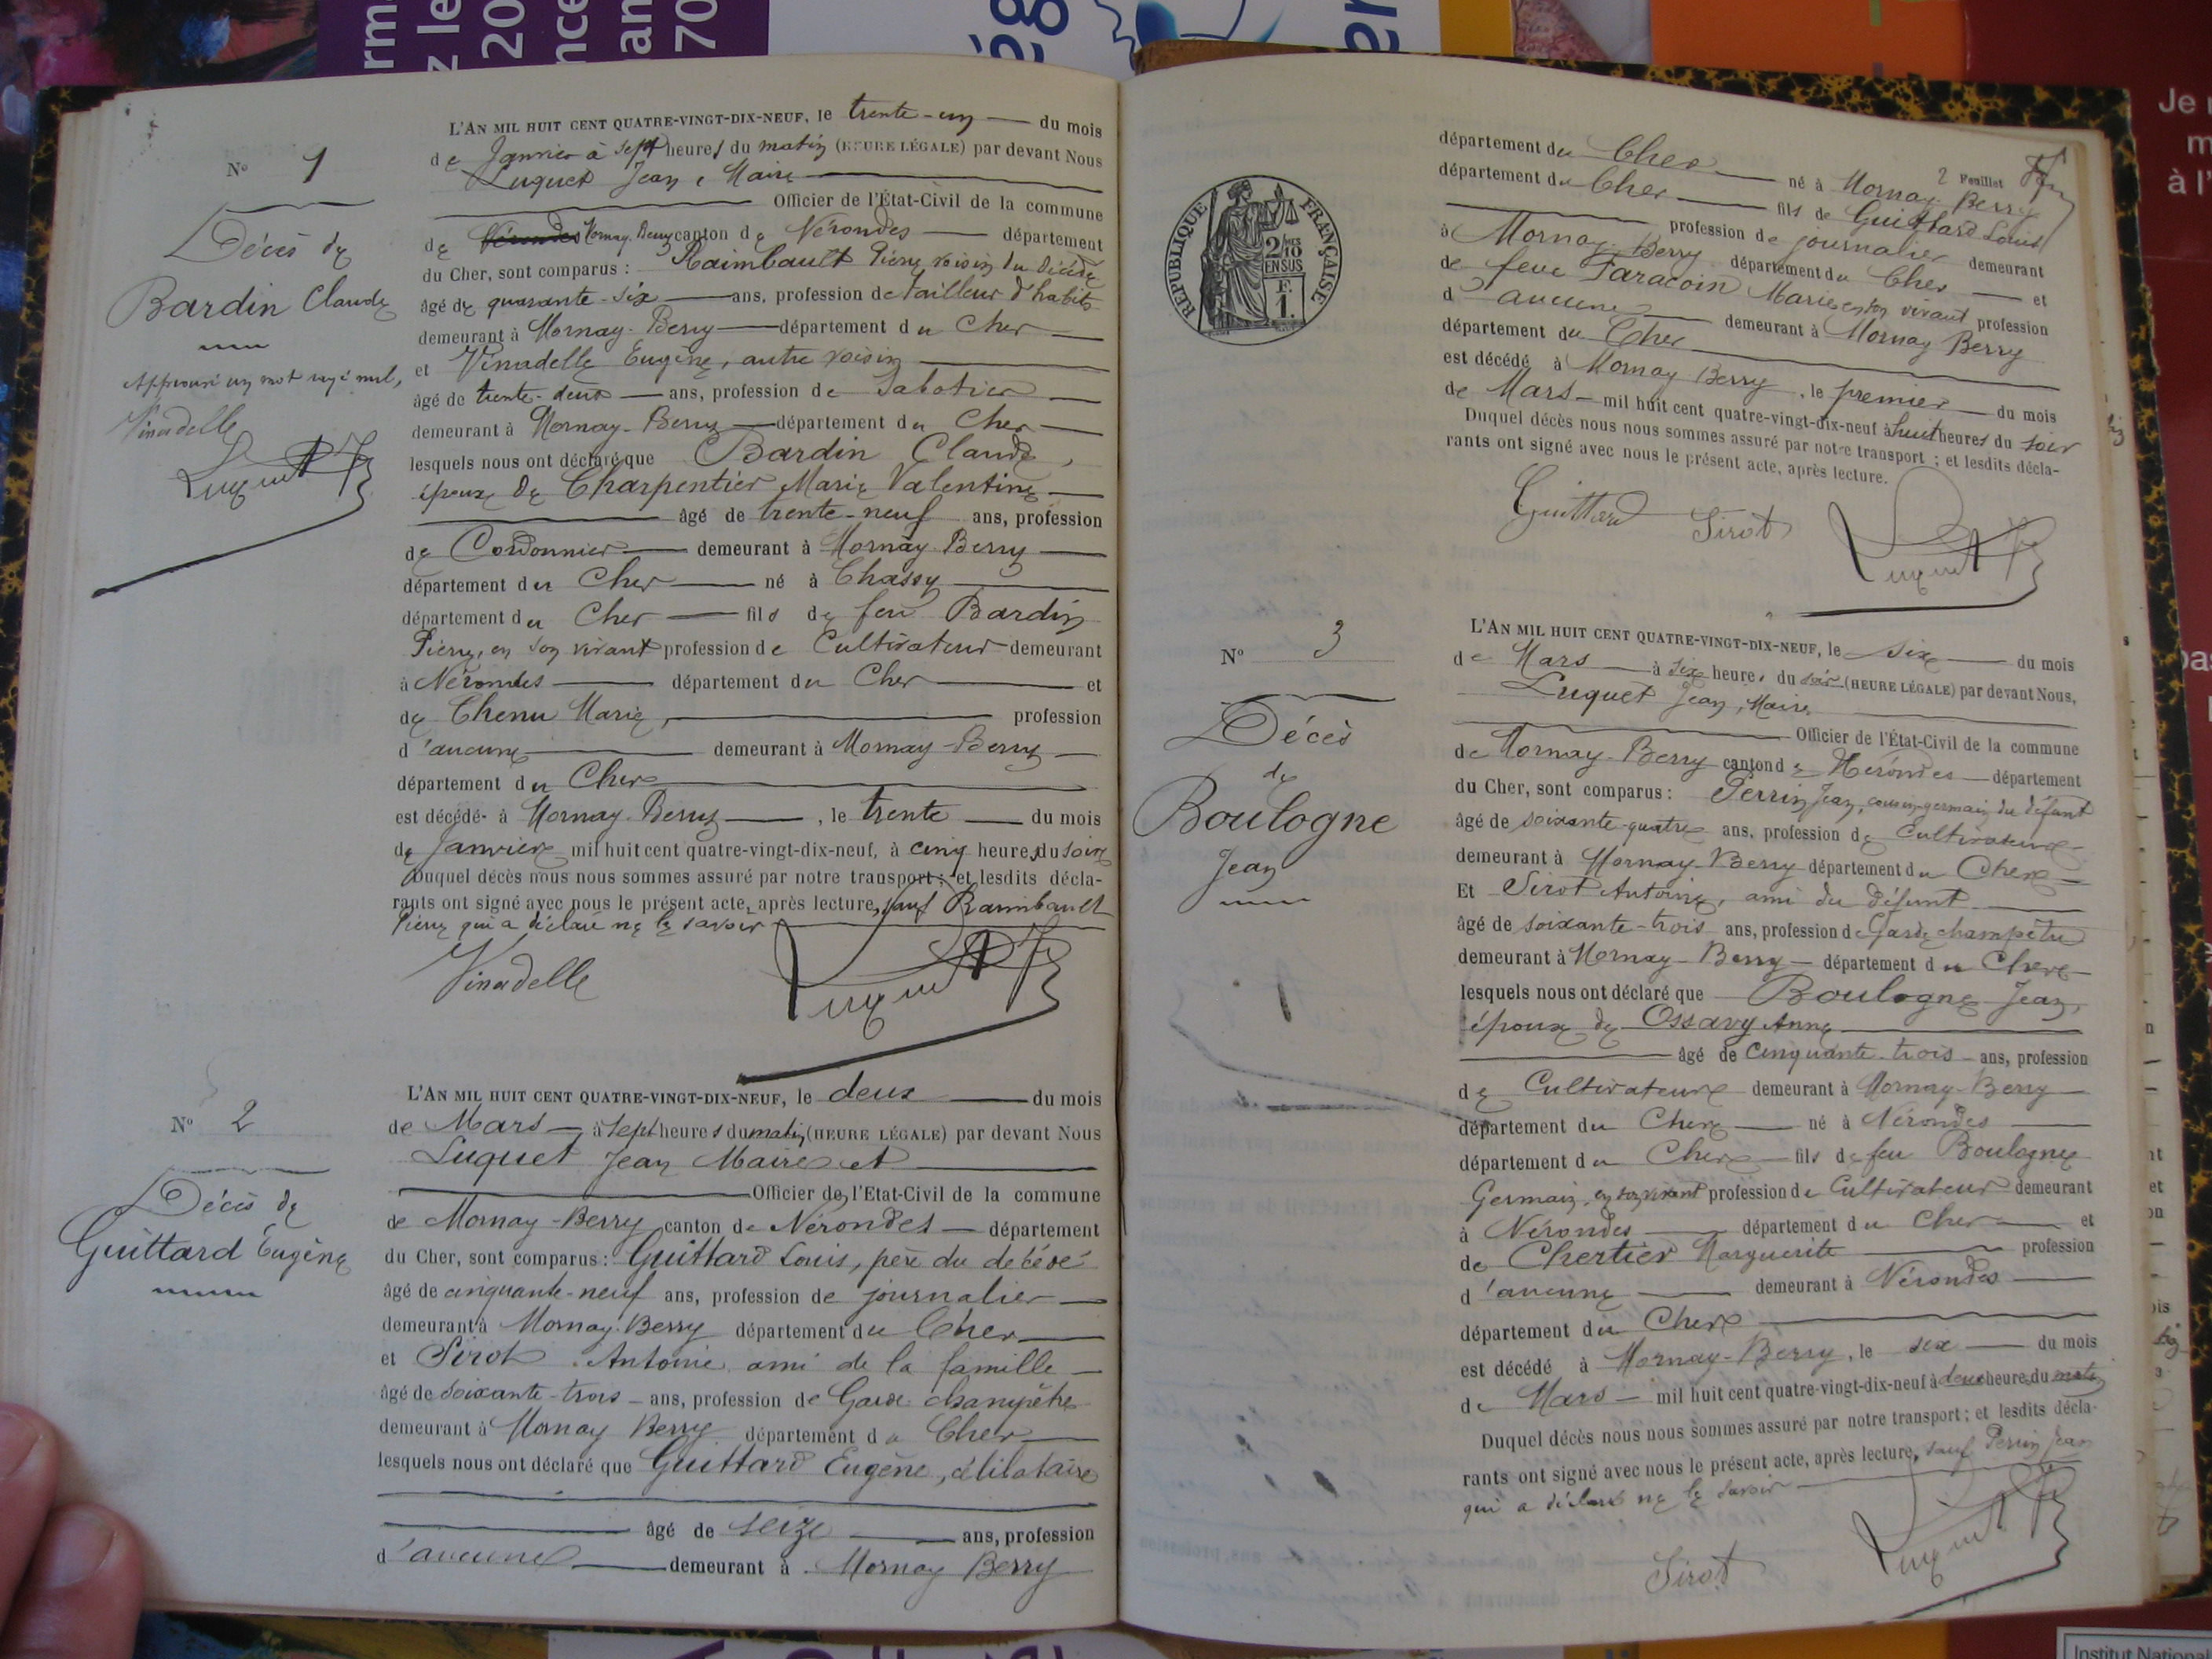 N° 1
Décès de
Bardin Claude
Approuvé un mot rayé nul,
Vinadelle
Luquet
L'AN MIL HUIT CENT QUATRE-VINGT-DIX-NEUF, le trente-un du mois
de Janvier à sept heures du matin (HEURE LÉGALE) par devant Nous
Luquet Jean, Maire
Officier de l'État-Civil de la commune
de Nérondes Mornay-Berry canton de Nérondes département
du Cher, sont comparus : Raimbault Pierre voisin du décédé
âgé de quarante-six ans, profession de tailleur d'habits
demeurant à Mornay-Berry département du Cher
et Vinadelle Eugène, autre voisin
âgé de trente-deux ans, profession de Sabotier
demeurant à Mornay-Berry département du Cher
lesquels nous ont déclaré que Bardin Claude,
époux de Charpentier Marie Valentine
âgé de trente-neuf ans, profession
de Cordonnier demeurant à Mornay-Berry
département du Cher né à Chassy
département du Cher fils de feu Bardin
Pierre, en son vivant profession de Cultivateur demeurant
à Nérondes département du Cher et
de Chenu Marie, profession
d'aucune demeurant à Mornay-Berry
département du Cher
est décédé à Mornay-Berry, le trente du mois
de Janvier mil huit cent quatre-vingt-dix-neuf, à cinq heures du soir
Duquel décès nous nous sommes assuré par notre transport ; et lesdits décla-
rants ont signé avec nous le présent acte, après lecture, sauf Raimbault
Pierre qui a déclaré ne le savoir
Vinadelle Luquet
N° 2
Décès de
Guittard Eugène
L'AN MIL HUIT CENT QUATRE-VINGT-DIX-NEUF, le deux du mois
de Mars à sept heures du matin (HEURE LÉGALE) par devant Nous
Luquet Jean Maire et
Officier de l'Etat-Civil de la commune
de Mornay-Berry canton de Nérondes département
du Cher, sont comparus : Guittard Louis, père du décédé
âgé de cinquante-neuf ans, profession de journalier
demeurant à Mornay-Berry département du Cher
et Sirot Antoine ami de la famille
âgé de soixante-trois ans, profession de Garde champêtre
demeurant à Mornay Berry département du Cher
lesquels nous ont déclaré que Guittard Eugène, célibataire
âgé de seize ans, profession
d'aucune demeurant à Mornay Berry
2 Feuillet
RÉPUBLIQUE FRANÇAISE
2/10
EN SUS
F.
1.
département du Cher né à Mornay Berry
département du Cher fils de Guittard Louis
profession de journalier demeurant
à Mornay-Berry département du Cher et
de feue Faracoin Marie en son vivant profession
d'aucune demeurant à Mornay Berry
département du Cher
est décédé à Mornay Berry, le premier du mois
de Mars mil huit cent quatre-vingt-dix-neuf à huit heures du soir
Duquel décès nous nous sommes assuré par notre transport ; et lesdits décla-
rants ont signé avec nous le présent acte, après lecture.
Guittard Sirot Luquet
N° 3
Décès
de
Boulogne
Jean
L'AN MIL HUIT CENT QUATRE-VINGT-DIX-NEUF, le six du mois
de Mars à six heures du soir (HEURE LÉGALE) par devant Nous,
Luquet Jean, Maire
Officier de l'État-Civil de la commune
de Mornay-Berry canton de Nérondes département
du Cher, sont comparus : Perrin Jean, cousin-germain du défunt
âgé de soixante-quatre ans, profession de Cultivateur
demeurant à Mornay-Berry département du Cher
Et Sirot Antoine, ami du défunt
âgé de soixante-trois ans, profession de Garde champêtre
demeurant à Mornay-Berry département du Cher
lesquels nous ont déclaré que Boulogne Jean,
époux de Ossavy Anne
âgé de cinquante-trois ans, profession
de Cultivateur demeurant à Mornay-Berry
département du Cher né à Nérondes
département du Cher fils de feu Boulogne
Germain, en son vivant profession de Cultivateur demeurant
à Nérondes département du Cher et
de Chertier Marguerite profession
d'aucune demeurant à Nérondes
département du Cher
est décédé à Mornay-Berry, le six du mois
de Mars mil huit cent quatre-vingt-dix-neuf à deux heures du matin
Duquel décès nous nous sommes assuré par notre transport ; et lesdits décla-
rants ont signé avec nous le présent acte, après lecture, sauf Perrin Jean
qui a déclaré ne le savoir
Sirot Luquet